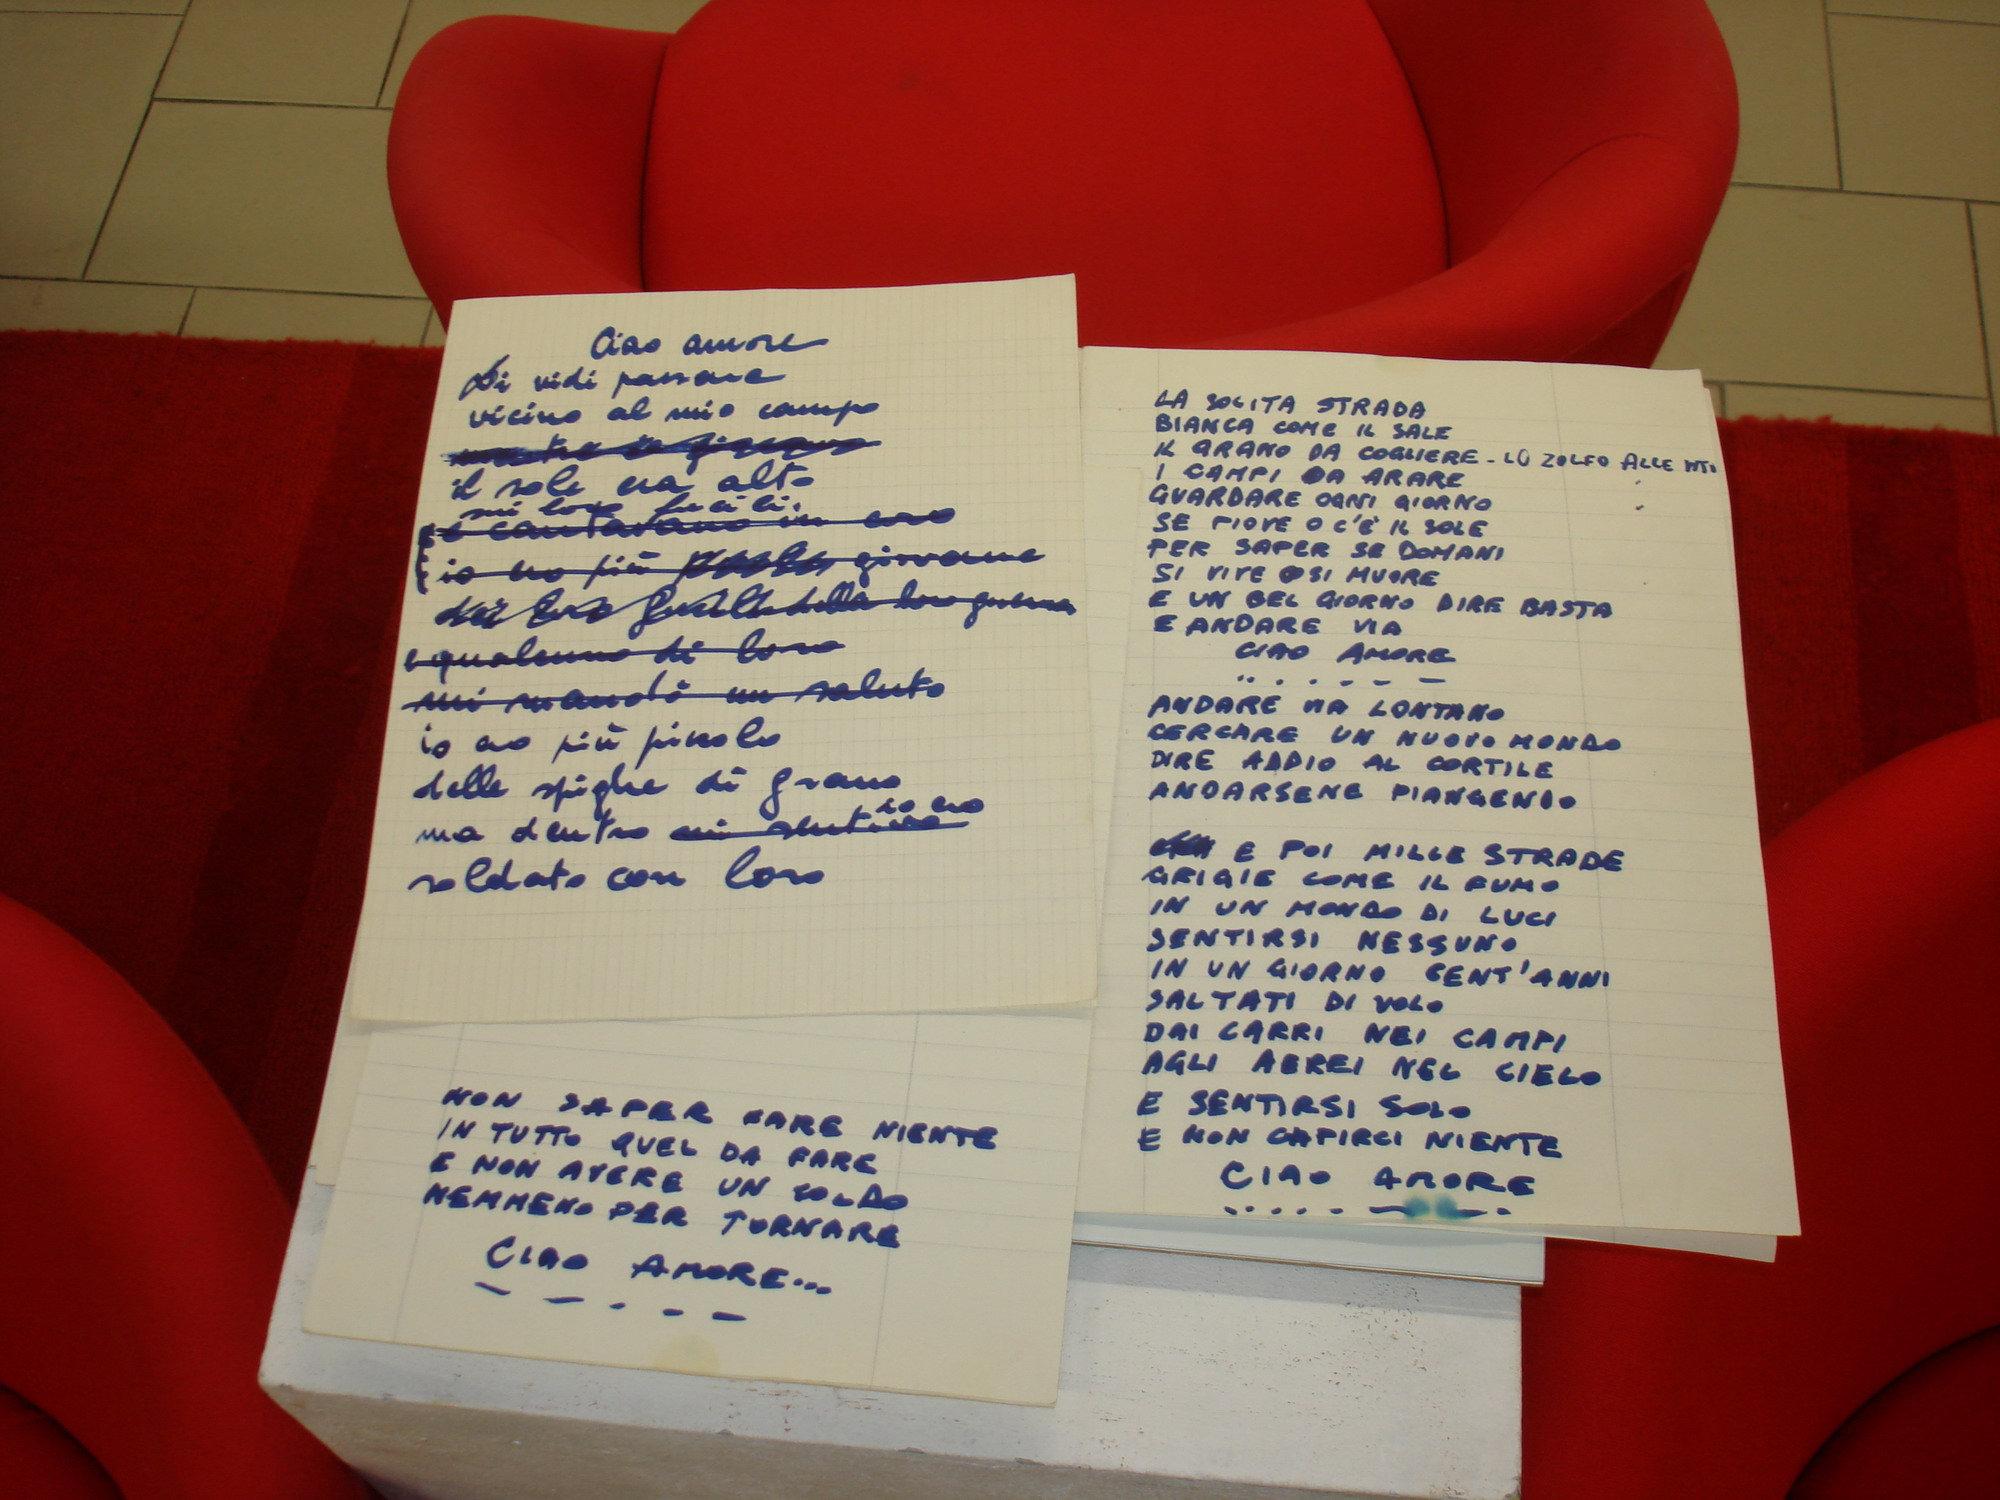 Ciao amore
Li vidi passare
vicino al mio campo
il sole era alto
sui loro fucili.
e cantavano in coro
io ero più piccolo giovane
dei loro fucili della loro guerra
e qualcuno di loro
mi mandò un saluto
io ero più piccolo
delle spighe di grano
io ero
ma dentro mi sentivo
soldato con loro
NON SAPER FARE NIENTE
IN TUTTO QUEL DA FARE
E NON AVERE UN SOLDO
NEMMENO PER TORNARE
CIAO AMORE...
LA SOLITA STRADA
BIANCA COME IL SALE
IL GRANO DA COGLIERE - LO ZOLFO ALLE
I CAMPI DA ARARE
GUARDARE OGNI GIORNO
SE PIOVE O C'È IL SOLE
PER SAPER SE DOMANI
SI VIVE O SI MUORE
E UN BEL GIORNO DIRE BASTA
E ANDARE VIA
CIAO AMORE
ANDARE VIA LONTANO
CERCARE UN NUOVO MONDO
DIRE ADDIO AL CORTILE
ANDARSENE PIANGENDO
E POI MILLE STRADE
GRIGIE COME IL FUMO
IN UN MONDO DI LUCI
SENTIRSI NESSUNO
IN UN GIORNO CENT'ANNI
SALTATI DI VOLO
DAI CARRI NEI CAMPI
AGLI AEREI NEL CIELO
E SENTIRSI SOLO
E NON CAPIRCI NIENTE
CIAO AMORE